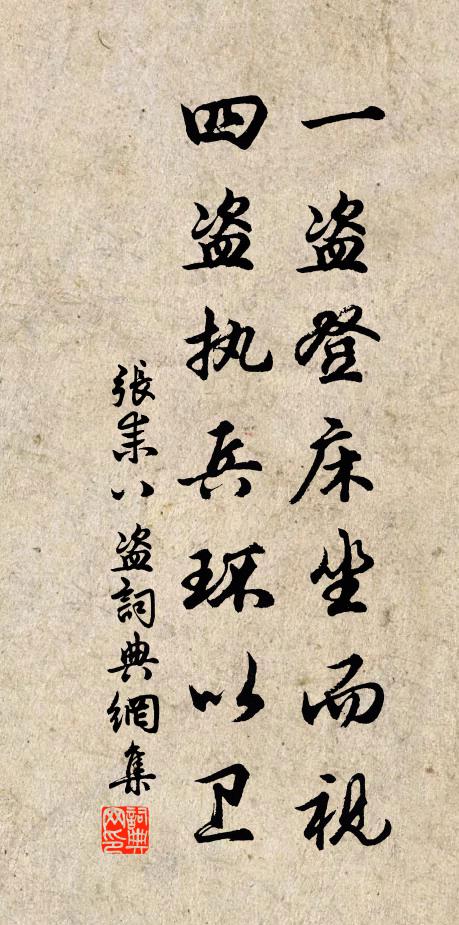 一盗登床坐而视
四盗执兵环以卫
張耒八盗詞典網集
詞典網印